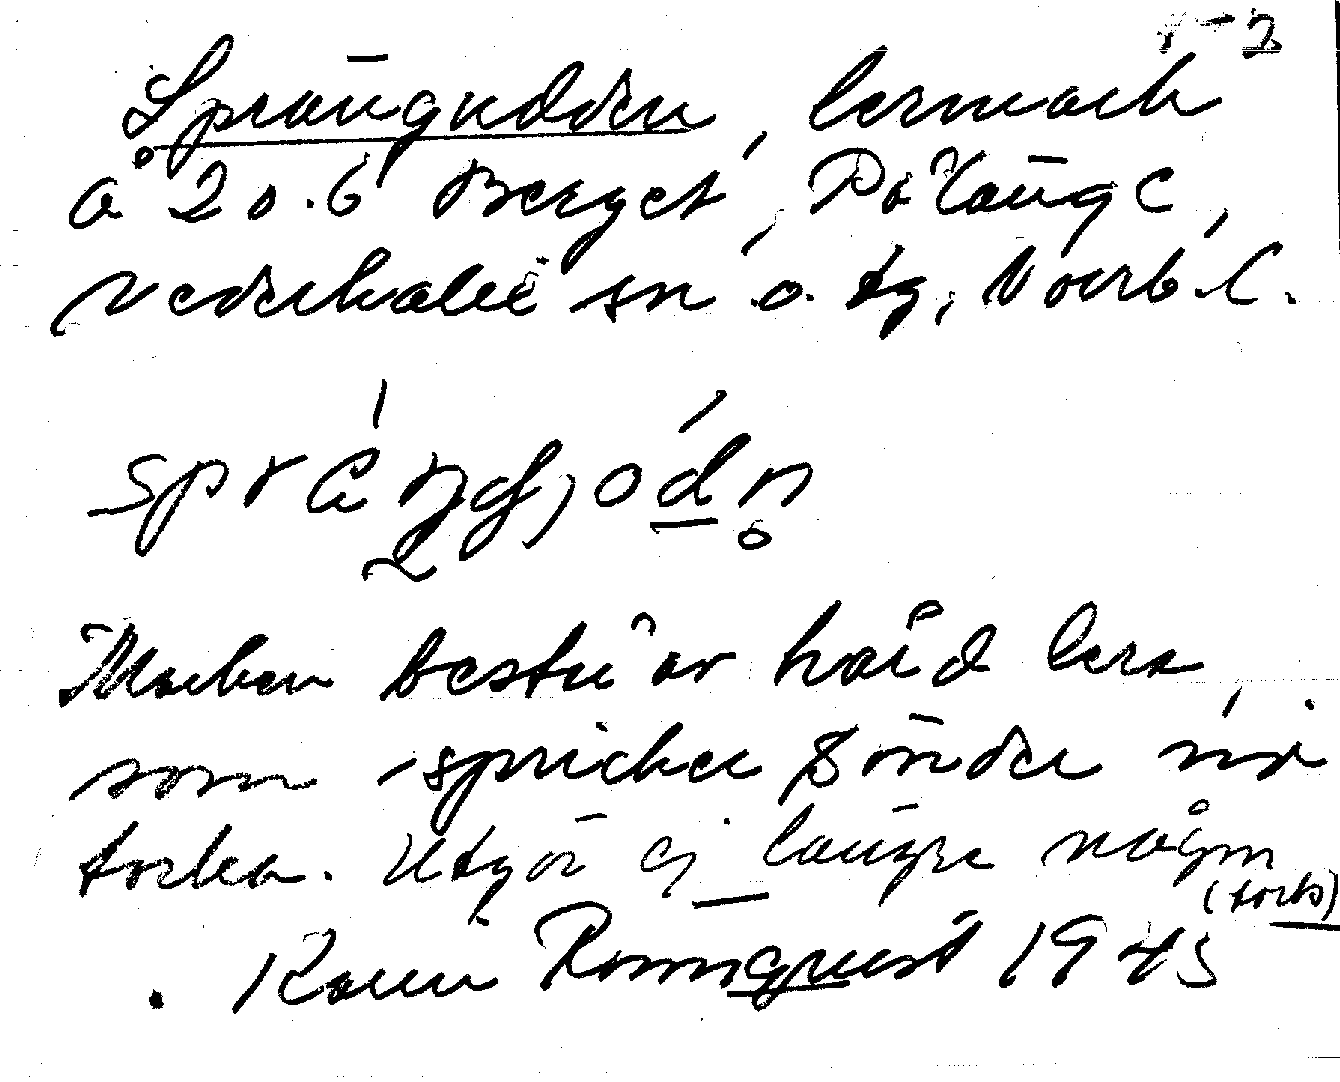 1-2
Sprängudden, lermark
å 20.6 Berget, Pålänge,
Nederkalix sn o. tg, Norrb. l.
Marken består av hård lera,
som spricker sönder vid
torka. Utgör ej längre någon
(torks)
Karin Ronnqvist 1945